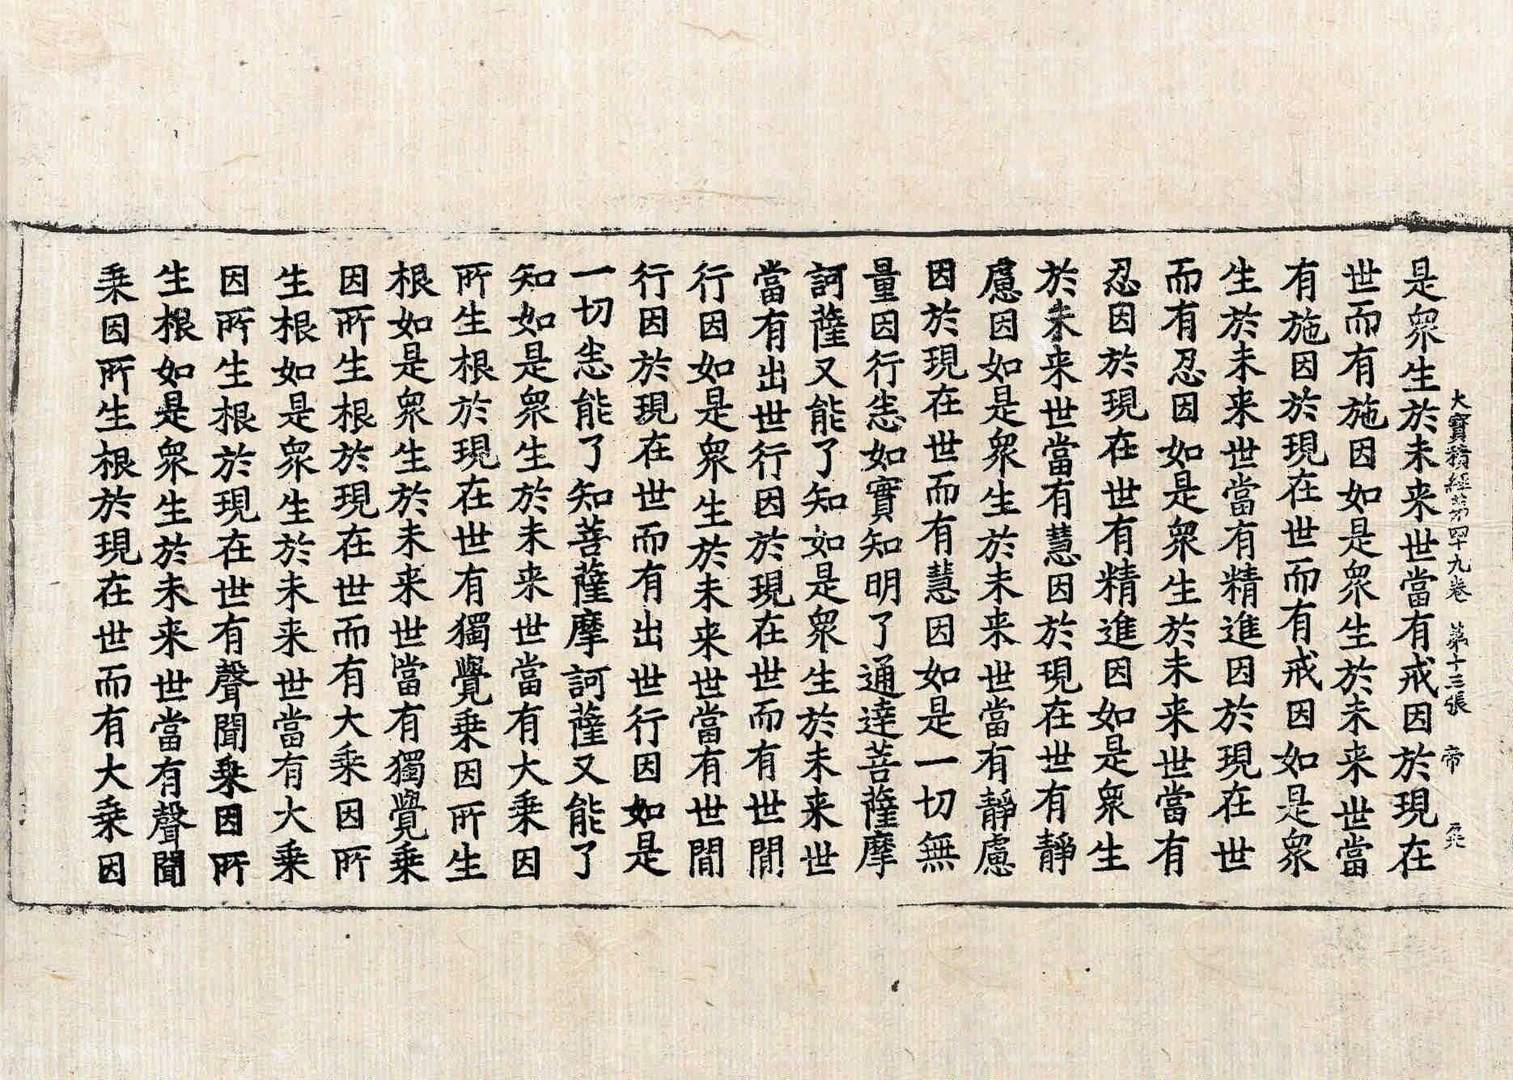 大寶積經第四十九卷 第十三張 帝
是衆生於未来世當有戒因於現在
世而有施因如是衆生於未来世當
有施因於現在世而有戒因如是衆
生於未来世當有精進因於現在世
而有忍因如是衆生於未来世當有
忍因於現在世有精進因如是衆生
於未来世當有慧因於現在世有靜
慮因如是衆生於未来世當有靜慮
因於現在世而有慧因如是一切無
量因行悉如實知明了通達菩薩摩
訶薩又能了知如是衆生於未来世
當有出世行因於現在世而有世間
行因如是衆生於未来世當有世間
行因於現在世而有出世行因如是
一切悉能了知菩薩摩訶薩又能了
知如是衆生於未来世當有大乗因
所生根於現在世有獨覺乗因所生
根如是衆生於未来世當有獨覺乗
因所生根於現在世而有大乗因所
生根如是衆生於未来世當有大乗
因所生根於現在世有聲聞乗因所
生根如是衆生於未来世當有聲聞
乗因所生根於現在世而有大乗因